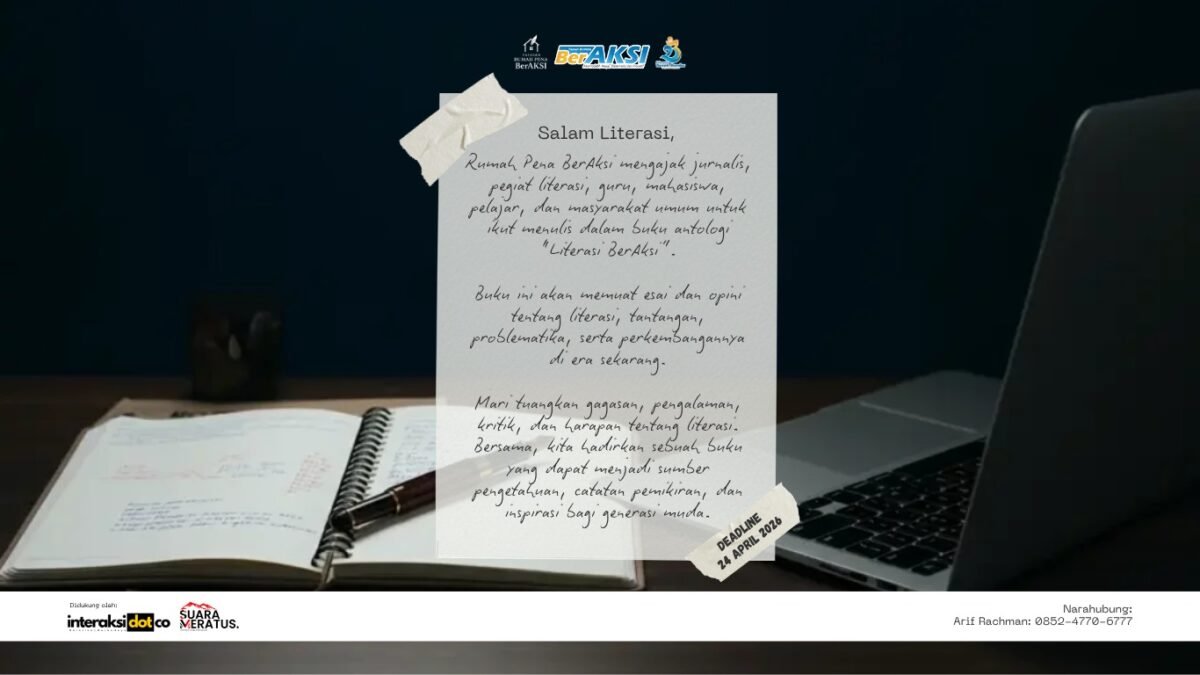 RUMAH PENA
BerAKSI
BerAKSI
Salam Literasi,
Rumah Pena BerAksi mengajak jurnalis,
pegiat literasi, guru, mahasiswa,
pelajar, dan masyarakat umum untuk
ikut menulis dalam buku antologi
"Literasi BerAksi".
Buku ini akan memuat esai dan opini
tentang literasi, tantangan,
problematika, serta perkembangannya
di era sekarang.
Mari tuangkan gagasan, pengalaman,
kritik, dan harapan tentang literasi.
Bersama, kita hadirkan sebuah buku
yang dapat menjadi sumber
pengetahuan, catatan pemikiran, dan
inspirasi bagi generasi muda.
DEADLINE
24 APRIL 2026
Didukung oleh:
interaksidotco
SUARA
MERATUS.
Narahubung:
Arif Rachman: 0852-4770-6777